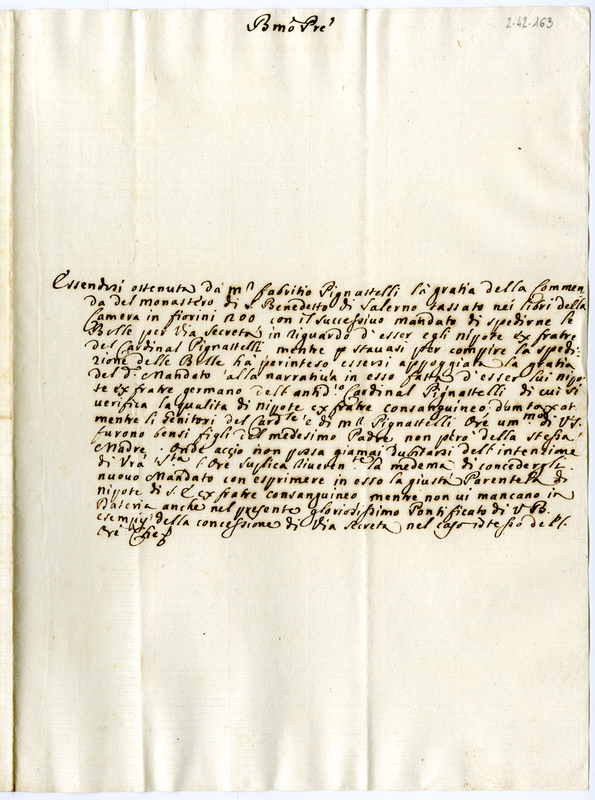 Bmo Pre
2-42-163
Essendosi ottenuta da mr Fabritio Pignattelli la gratia della Commen
da del monastero di S. Benedetto di Salerno tassato nei libri della
Camera in fiorini 200 con il successivo mandato di spedirne le
Bolle per Via Secreta in riguardo d'esser egli nipote ex fratre
del Cardinal Pignattelli mentre stavasi per compire la spedi-
zione delle Bolle ha perinteso essersi appoggiata la gratia
del do Mandato alla narrativa in esso fatta d'esser lui nipo-
te ex fratre germano dell'antdo Cardinal Pignattelli di cui si
verifica la qualità di nipote ex fratre consanguineo
mentre li Genitori del Cardle e di mr Pignattelli Ore
furono bensi figli del medesimo Padre, non però della stessa
Madre. Onde acciò non possa giamai dubitarsi dell'intenzione
di Vra Sta l'Ore suplica riverente la medema di concedergli
nuovo Mandato con esprimere in esso la giusta Parentela di
nipote di ex fratre consanguineo mentre non vi mancano in
Dataria anche nel presente gloriosissimo Pontificato di V B.
esempij della concessione di Via Secreta nel caso istesso dell'
Ore Che